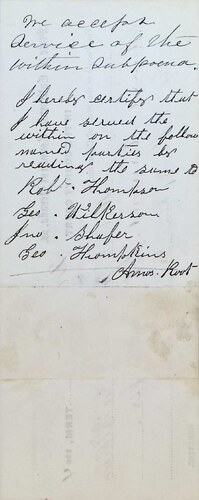 We accept
service of the
within subpoena.
I hereby certify that
I have served the
within on the follow
named parties by
reading the same to
Robt. Thompson
Geo. Wilkerson
Jno. Shafer
Geo. Thompkins
Amos Root
TERM, 186